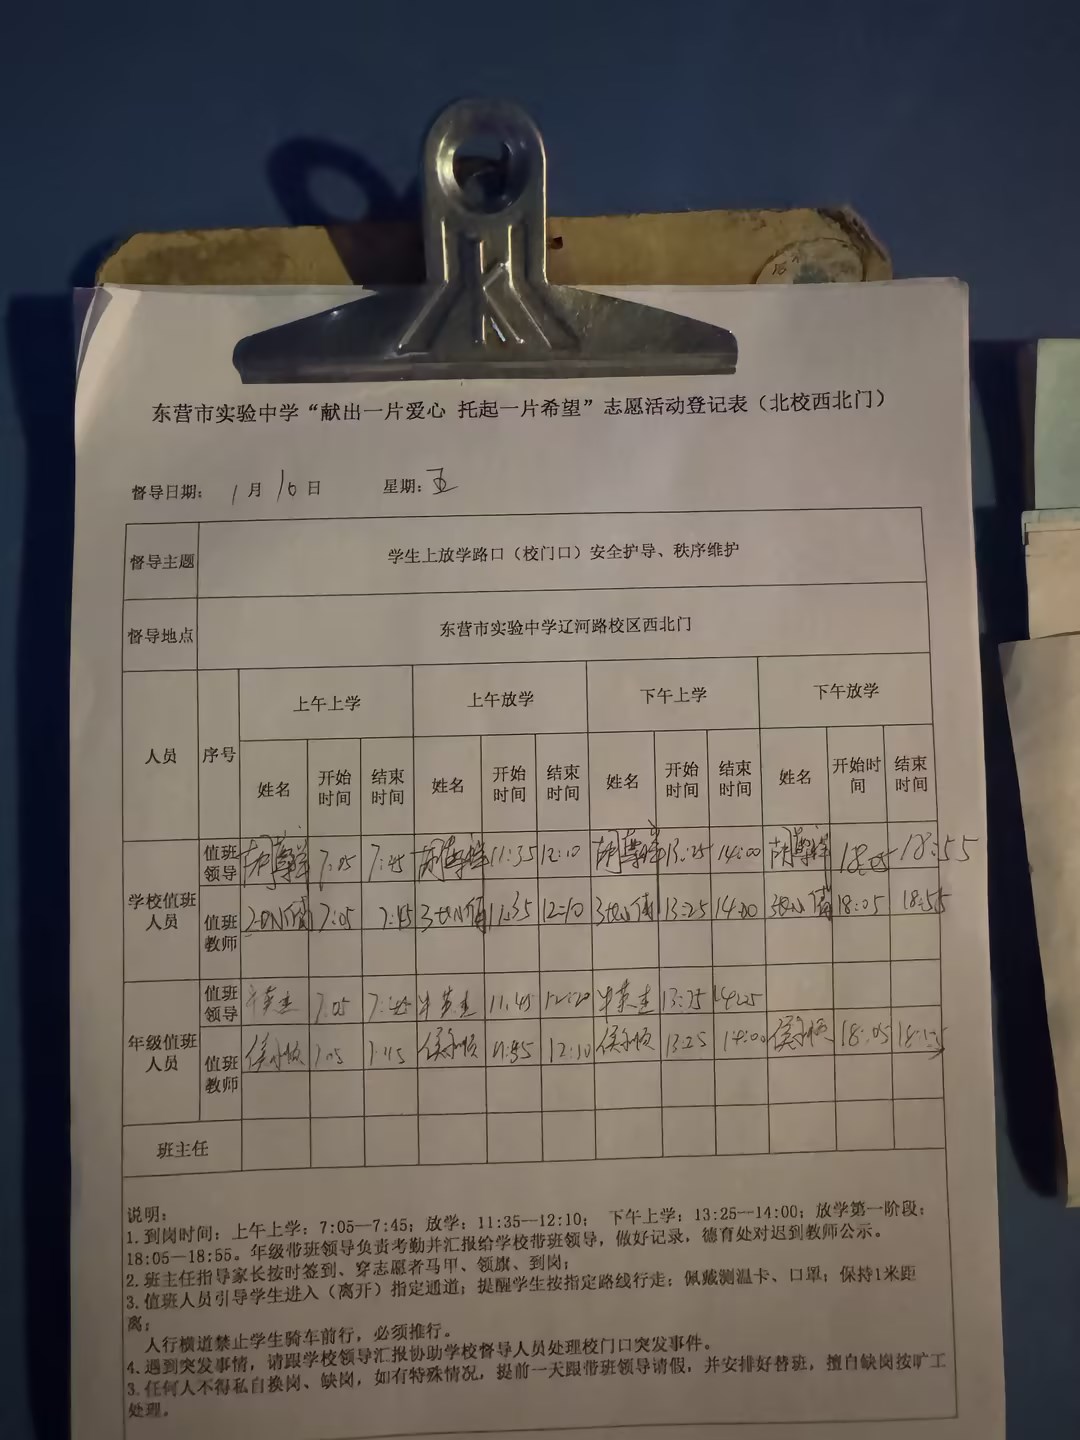 东营市实验中学“献出一片爱心 托起一片希望”志愿活动登记表（北校西北门）
督导日期： 1月10日 星期：五
督导主题 学生上放学路口（校门口）安全护导、秩序维护
督导地点 东营市实验中学辽河路校区西北门
人员 序号 上午上学 上午放学 下午上学 下午放学
姓名 开始时间 结束时间 姓名 开始时间 结束时间 姓名 开始时间 结束时间 姓名 开始时间 结束时间
学校值班人员
值班领导 7:05 7:45 11:35 12:10 13:25 14:00 18:05 18:55
值班教师 7:05 7:45 11:35 12:10 13:25 14:00 18:05 18:55
年级值班人员
值班领导 牛英杰 7:05 7:45 牛英杰 11:45 12:20 牛英杰 13:25 14:25
值班教师 侯永顺 7:05 7:45 侯永顺 12:10 侯永顺 13:25 14:00 侯永顺 18:05
班主任
说明：
1.到岗时间：上午上学：7:05—7:45；放学：11:35—12:10； 下午上学：13:25—14:00；放学第一阶段：
18:05—18:55。年级带班领导负责考勤并汇报给学校带班领导，做好记录，德育处对迟到教师公示。
2.班主任指导家长按时签到、穿志愿者马甲、领旗、到岗；
3.值班人员引导学生进入（离开）指定通道；提醒学生按指定路线行走；佩戴测温卡、口罩；保持1米距
离；
人行横道禁止学生骑车前行，必须推行。
4.遇到突发事情，请跟学校领导汇报协助学校督导人员处理校门口突发事件。
3.任何人不得私自换岗、缺岗，如有特殊情况，提前一天跟带班领导请假，并安排好替班，擅自缺岗按旷工
处理。